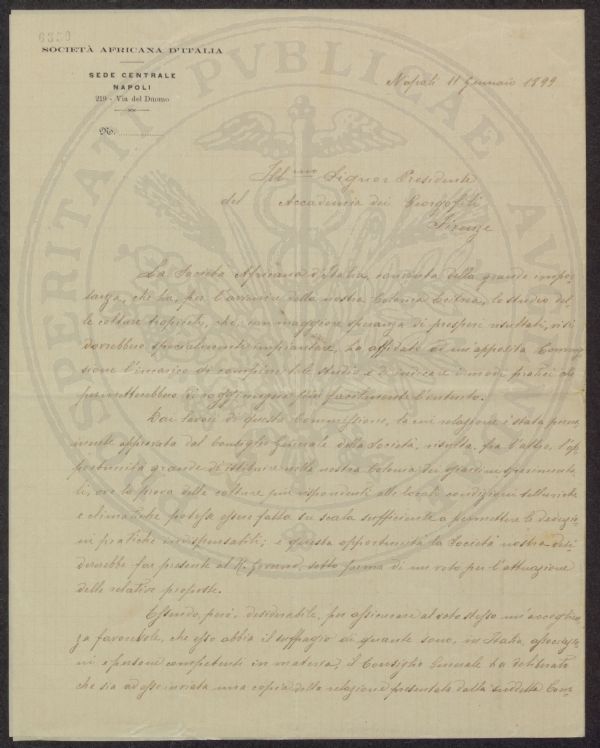 6350
SOCIETÀ AFRICANA D'ITALIA
SEDE CENTRALE
NAPOLI
219 - Via del Duomo
N.
Napoli 11 Gennaio 1899
Ill.mo Signor Presidente
del Accademia dei Georgofili
Firenze
La Società Africana d'Italia, convinta della grande impor-
tanza, che ha, per l'avvenire della nostra Colonia Eritrea, lo studio del-
le colture tropicali, che, con maggiore speranza di prosperi risultati, vi si
dovrebbero specialmente impiantare, ha affidato ad un'apposita Commis-
sione l'incarico di compiere tale studio e d'indicare i modi pratici che
permetterebbero di raggiungere più facilmente l'intento.
Dai lavori di questa Commissione, la cui relazione è stata piena-
mente approvata dal Consiglio Generale della Società, risulta, fra l'altro, l'op-
portunità grande di istituire nella nostra Colonia dei giardini sperimenta-
li, ove la prova delle colture più rispondenti alle locali condizioni telluriche
e climatiche possa essere fatta su scala sufficiente a permettere le deduzio-
ni pratiche indispensabili; e questa opportunità la Società nostra desi-
dererebbe far presente al R. Governo, sotto forma di un voto per l'attuazione
delle relative proposte.
Essendo, però, desiderabile, per assicurare al voto stesso un'accoglien-
za favorevole, che esso abbia il suffragio di quante sono, in Italia, associazio-
ni e persone competenti in materia, il Consiglio Generale ha deliberato
che sia ad esse inviata una copia della relazione presentata dalla suddetta Com-
PROSPERITATI PUBLICAE AUGENDAE